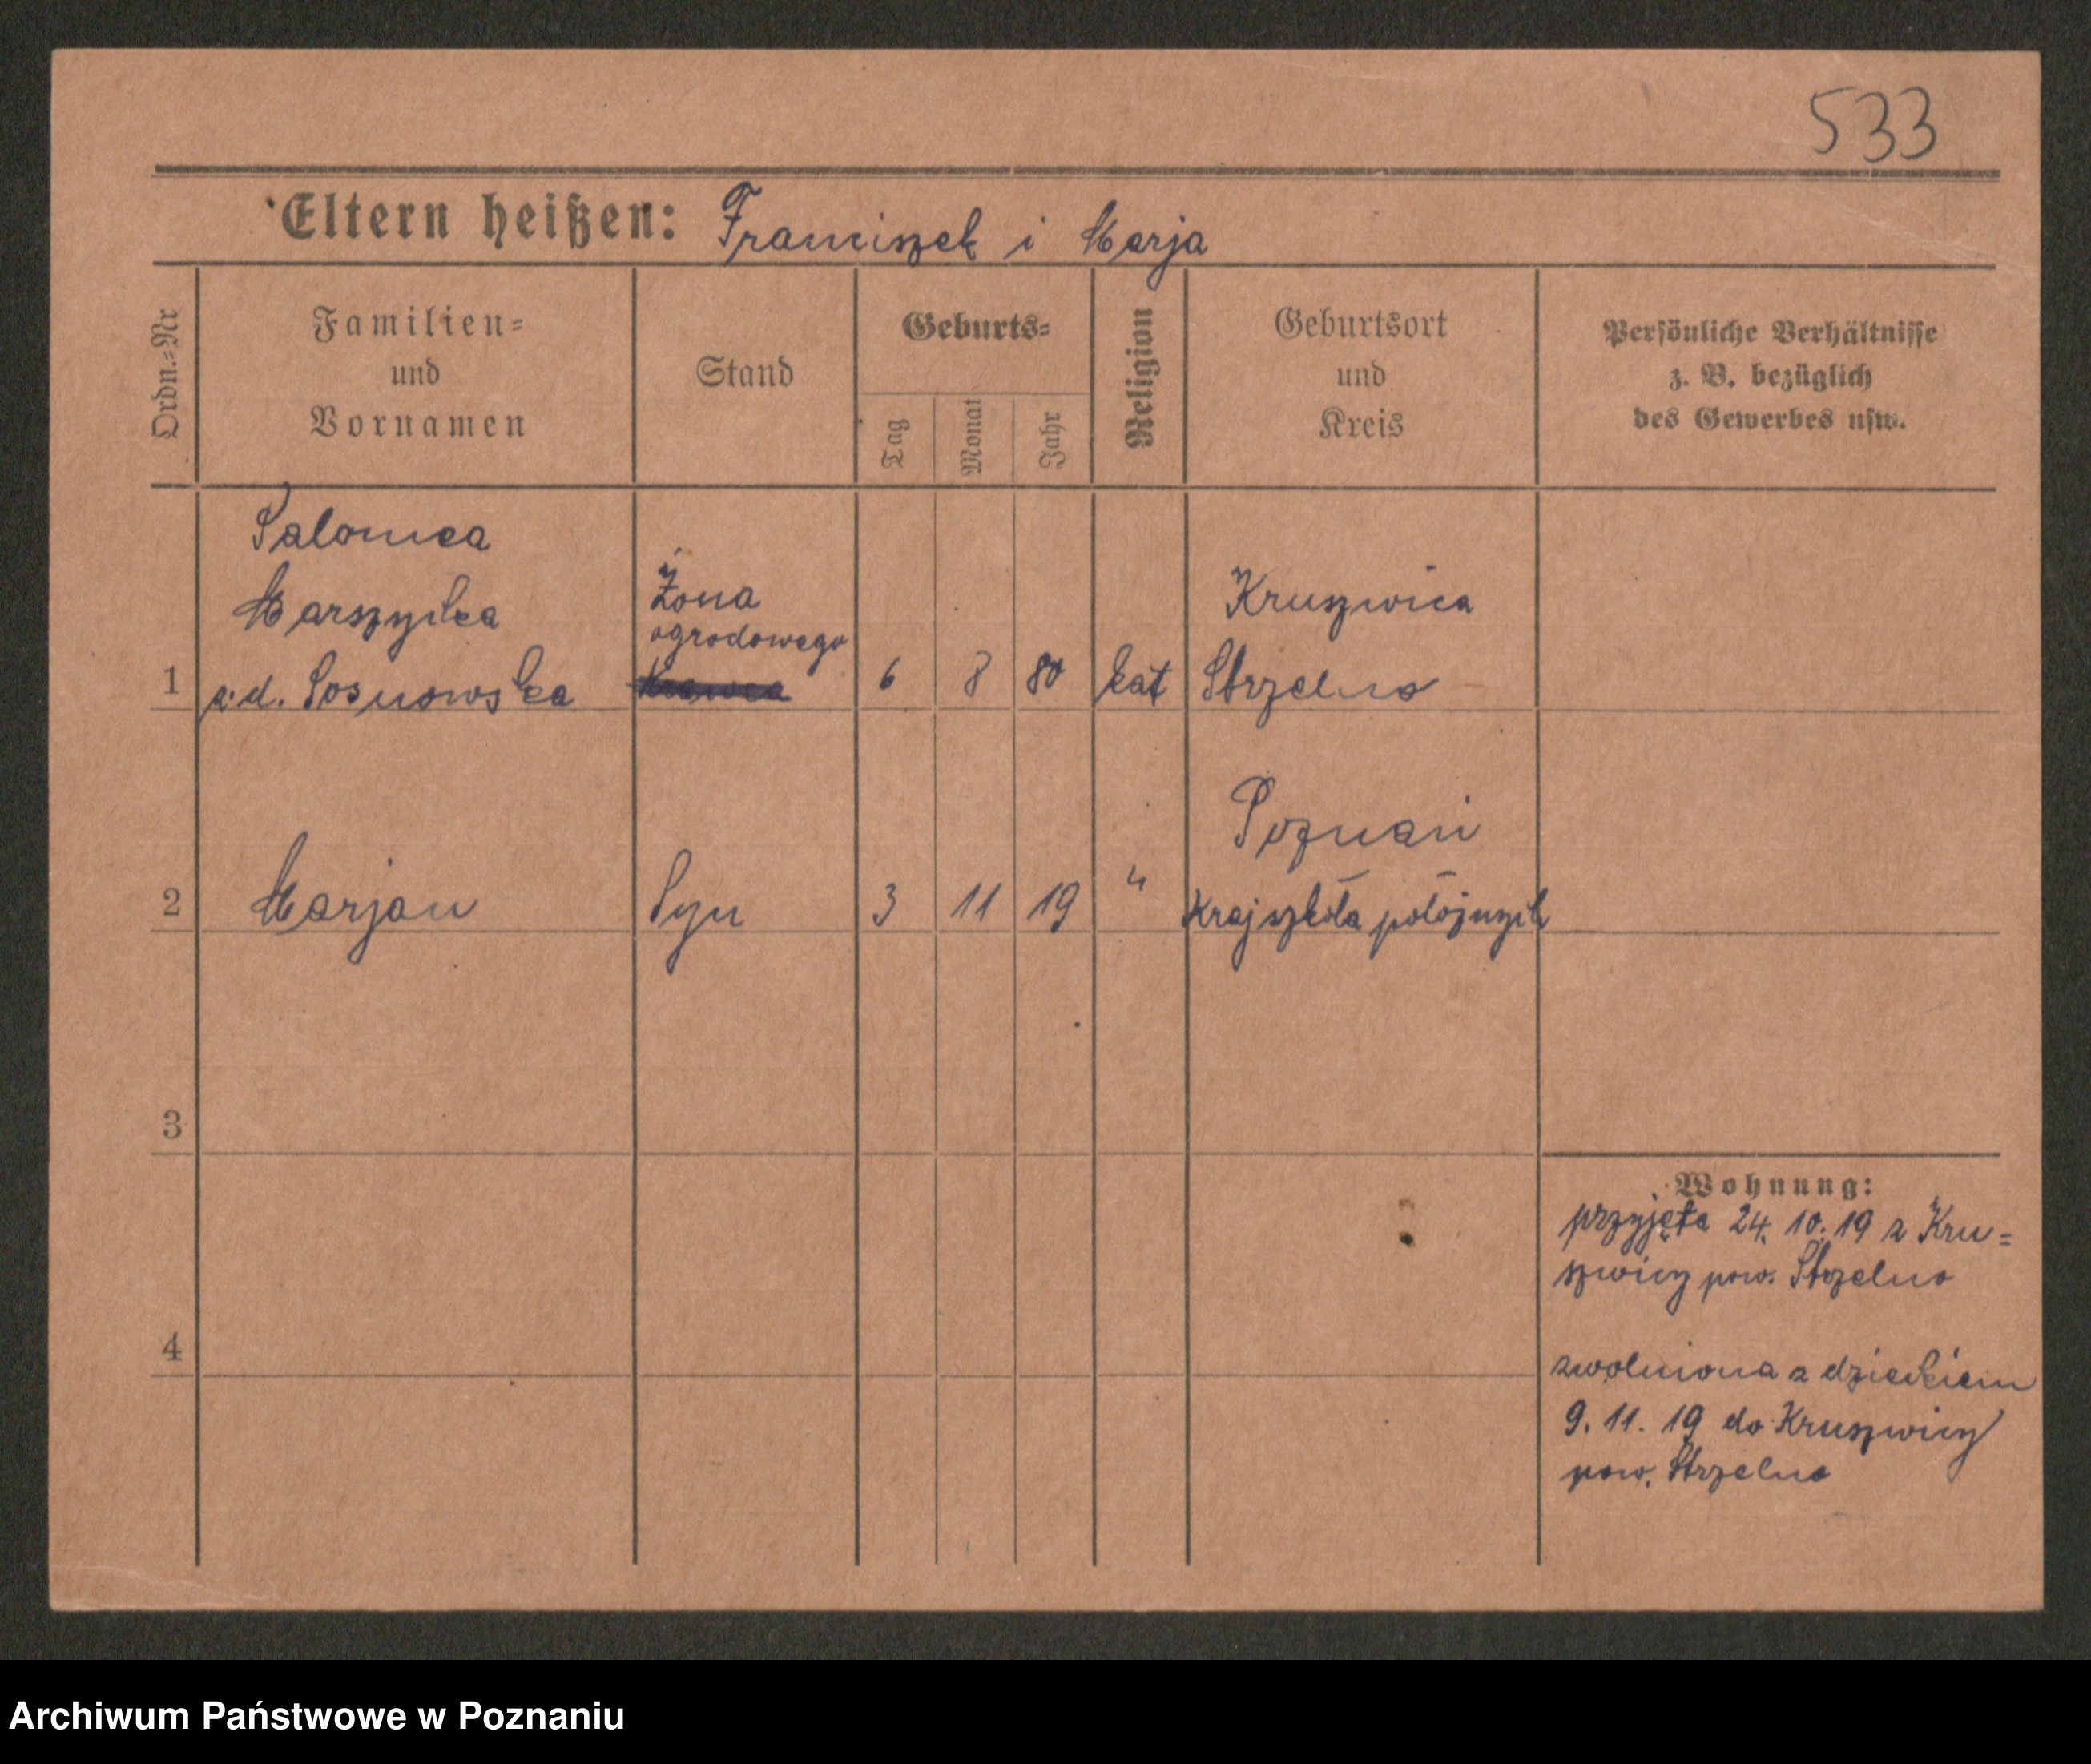 533
Eltern heißen: Franciszek i Marja
Ordn.-Nr
Familien-
und
Vornamen
Stand
Geburts-
Tag
Monat
Jahr
Religion
Geburtsort
und
Kreis
Persönliche Verhältnisse
z. B. bezüglich
des Gewerbes usw.
1
Salomea
Marszycka
z.d. Sosnowska
Żona
ogrodowego
6
8
80
kat
Kruszwica
Strzelno
2
Marjan
Syn
3
11
19
"
Poznań
Kraj szkoła położnych
3
4
Wohnung:
przyjęta 24. 10. 19 z Kru=
szwicy pow. Strzelno
zwolniona z dzieckiem
9. 11. 19 do Kruszwicy
pow. Strzelno
Archiwum Państwowe w Poznaniu